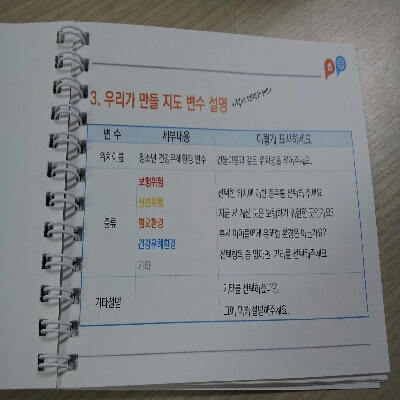 3. 우리가 만들 지도 변수 설명
변 수 세부내용 이렇게 표시하세요
위치이름 청소년 건강유해환경 변수 건물이름과 같은 위치명을 적어주세요.
보행위험
신변위험
혐오환경
건강유해환경
기타
종류
선택한 위치에 대한 종류를 선택해 주세요
지금 서 계신 곳은 보행하기 위험한 곳인가요?
혹시 아이들에게 유해한 환경은 아닌가요?
선택항목 중 없다면, 기타를 선택해주세요
기타설명
기타를 선택하셨다면,
그에 따라 설명해주세요.